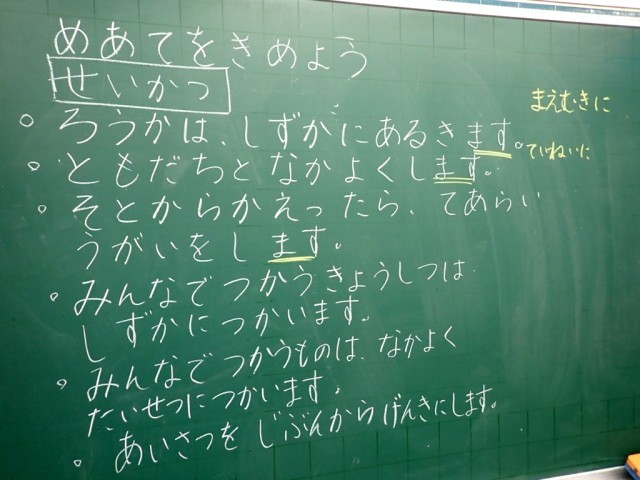 めあてをきめよう
せいかつ
まえむきに
。ろうかは、しずかにあるきます。
ていねいに
。ともだちとなかよくします。
。そとからかえったら、てあらい
うがいをします。
。みんなでつかうきょうしつは
しずかにつかいます。
。みんなでつかうものは、なかよく
たいせつにつかいます。
。あいさつをじぶんからげんきにします。